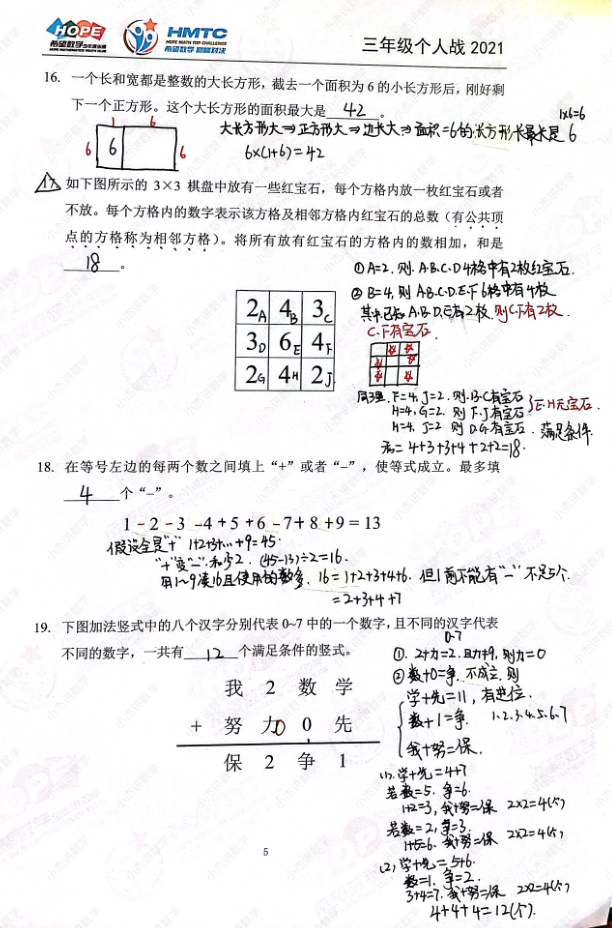 HOPE
希望数学
HMTC
HOPE MATH TOP CHALLENGE
希望数学 巅峰对决
三年级个人战 2021
16. 一个长和宽都是整数的大长方形，截去一个面积为 6 的小长方形后，刚好剩
下一个正方形。这个大长方形的面积最大是 42 。
1×6=6
大长方形大⇒正方形大⇒边长大⇒面积=6的长方形长最长是 6
1 6
6 6 6
6×(1+6)=42
17. 如下图所示的 3×3 棋盘中放有一些红宝石，每个方格内放一枚红宝石或者
不放。每个方格内的数字表示该方格及相邻方格内红宝石的总数（有公共顶
点的方格称为相邻方格）。将所有放有红宝石的方格内的数相加，和是
18 。
① A=2. 则 A.B.C.D 4格中有2枚红宝石.
② B=4, 则 A.B.C.D.E.F 6格中有4枚
其中已知 A.B.D.E有2枚. 则C.F有2枚.
C.F有宝石.
2A 4B 3C
3D 6E 4F
2G 4H 2J
同理. F=4, J=2. 则.B.C有宝石
H=4, G=2. 则 F.J有宝石 }E.H无宝石.
H=4. J=2 则 D.G有宝石. 满足条件.
和= 4+3+3+4+2+2=18.
18. 在等号左边的每两个数之间填上“+”或者“–”，使等式成立。最多填
4 个“–”。
1 - 2 - 3 - 4 + 5 + 6 - 7 + 8 + 9 = 13
假设全是"+" 1+2+3+...+9=45.
"+"变"-". 和少2. (45-13)÷2=16.
用1~9凑16且使用的数多. 16=1+2+3+4+6. 但1前不能有"-" 不足5个.
=2+3+4+7
19. 下图加法竖式中的八个汉字分别代表 0~7 中的一个数字，且不同的汉字代表
0-7
不同的数字，一共有 12 个满足条件的竖式。
我 2 数 学
+ 努 力 0 0 先
保 2 争 1
①. 2+力=2. 且力≠9, 则力=0
② 数+0=争. 不成立. 则
学+先=11, 有进位.
数+1=争. 1.2.3.4.5.6.7
我+努=保.
(1). 学+先=4+7
若数=5. 争=6.
1+2=3, 我+努=保 2×2=4(个)
若数=2, 争=3.
1+5=6. 我+努=保 2×2=4(个)
(2) 学+先=5+6.
数=1. 争=2.
3+4=7. 我+努=保 2×2=4(个)
4+4+4=12(个).
5